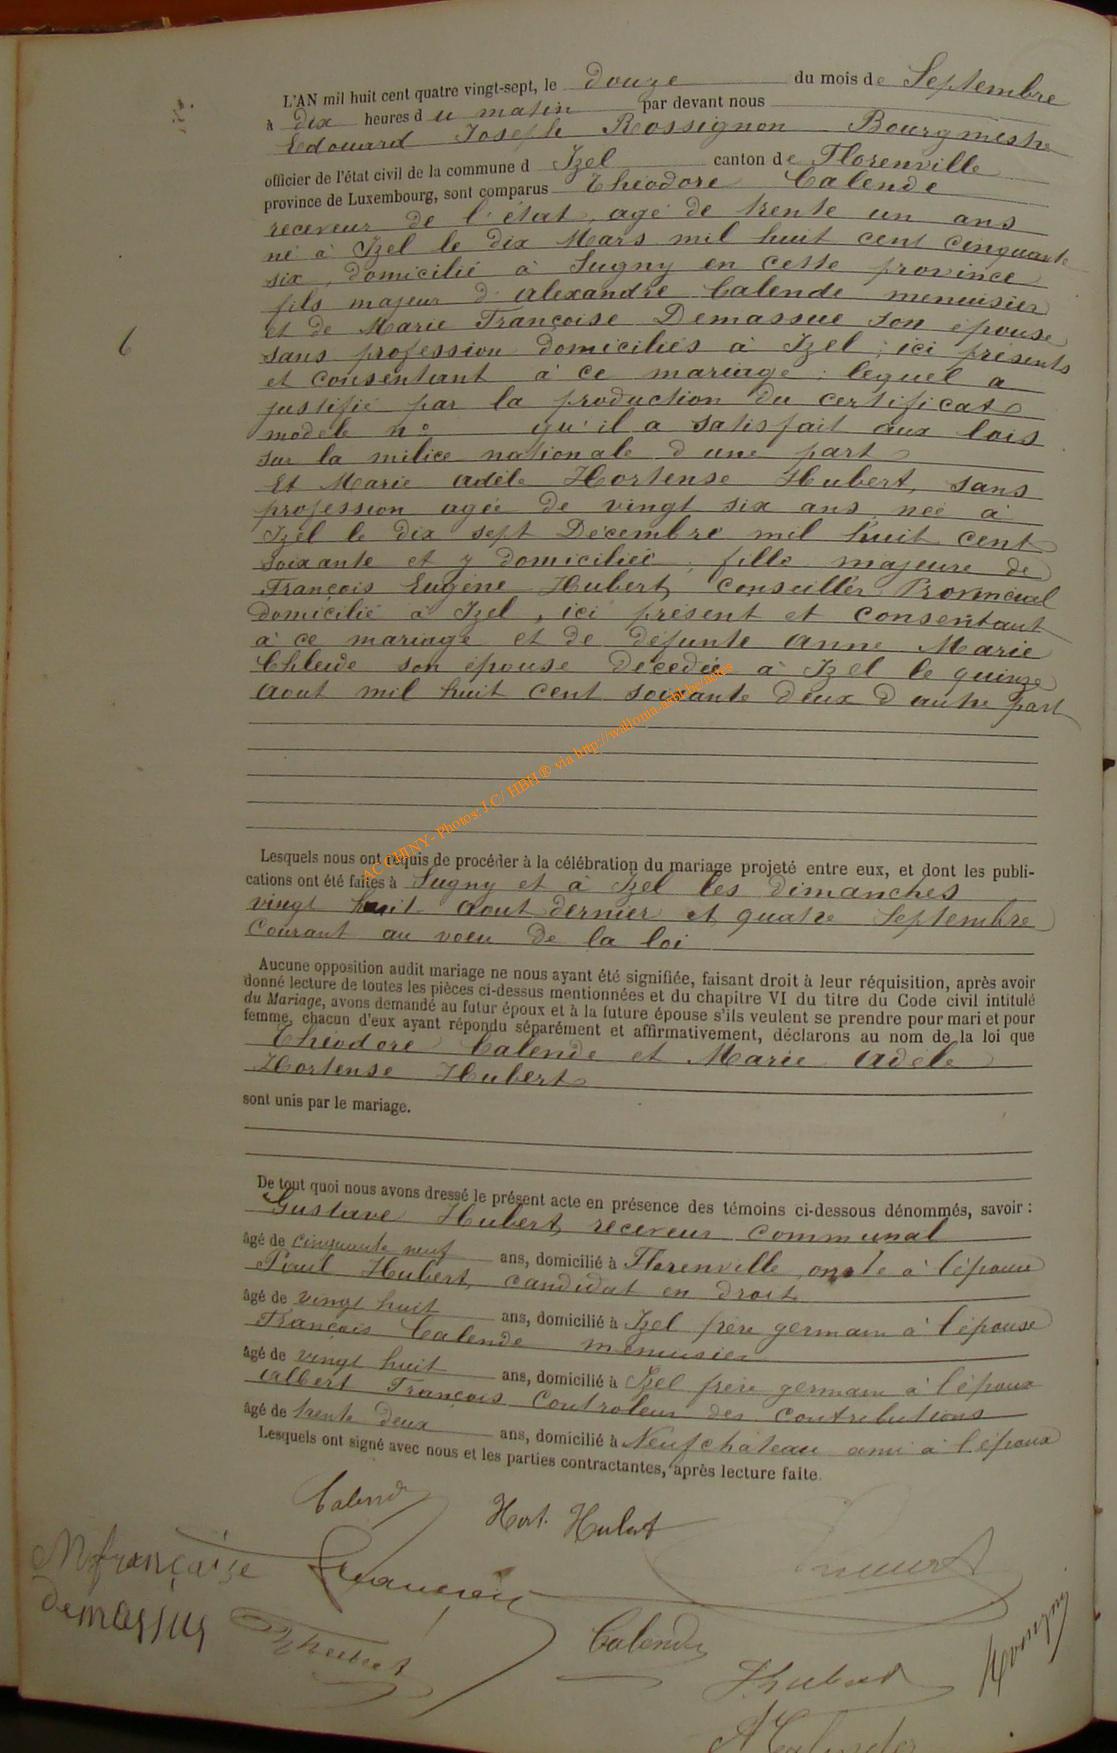 L'AN mil huit cent quatre vingt-sept, le douze du mois de Septembre
à dix heures du matin par devant nous
Edouard Joseph Rossignon Bourgmestre
officier de l'état civil de la commune d Izel canton de Florenville
province de Luxembourg, sont comparus Théodore Calende
receveur de l'état, agé de trente un ans
né à Izel le dix Mars mil huit cent cinquante
six, domicilié à Sugny en cette province
fils majeur d'Alexandre Calende menuisier
et de Marie Françoise Demassue son épouse
sans profession domiciliés à Izel ; ici présents
et consentant à ce mariage ; lequel a
justifié par la production du certificat
modèle n° qu'il a satisfait aux lois
sur la milice nationale d'une part
6
Et Marie Adèle Hortense Hubert, sans
profession agée de vingt six ans, née à
Izel le dix sept Décembre mil huit cent
soixante et y domiciliée ; fille majeure de
François Eugène Hubert, Conseiller Provincial
domicilié à Izel, ici présent et consentant
à ce mariage et de défunte Anne Marie
son épouse décédée à Izel le quinze
Aout mil huit cent soixante deux d'autre part
AC CHINY - Photos: J.C/ HBH ® via http://wallonia-asbl.be/actes
Lesquels nous ont requis de procéder à la célébration du mariage projeté entre eux, et dont les publi-
cations ont été faites à Sugny et à Izel les dimanches
vingt huit Aout dernier et quatre Septembre
Courant au voeu de la loi
Aucune opposition audit mariage ne nous ayant été signifiée, faisant droit à leur réquisition, après avoir
donné lecture de toutes les pièces ci-dessus mentionnées et du chapitre VI du titre du Code civil intitulé
du Mariage, avons demandé au futur époux et à la future épouse s'ils veulent se prendre pour mari et pour
femme, chacun d'eux ayant répondu séparément et affirmativement, déclarons au nom de la loi que
Théodore Calende et Marie Adèle
Hortense Hubert
sont unis par le mariage.
De tout quoi nous avons dressé le présent acte en présence des témoins ci-dessous dénommés, savoir :
Gustave Hubert, receveur communal
âgé de cinquante neuf ans, domicilié à Florenville, oncle à l'épouse
Paul Hubert, candidat en droit
âgé de vingt huit ans, domicilié à Izel frère germain à l'épouse
François Calende menuisier
âgé de vingt huit ans, domicilié à Izel frère germain à l'époux
Albert François Controleur des contributions
âgé de trente deux ans, domicilié à Neufchateau ami à l'époux
Lesquels ont signé avec nous et les parties contractantes, après lecture faite.
Calende
Hort. Hubert
M françaize
demassus
Calende
Hubert
A Calende